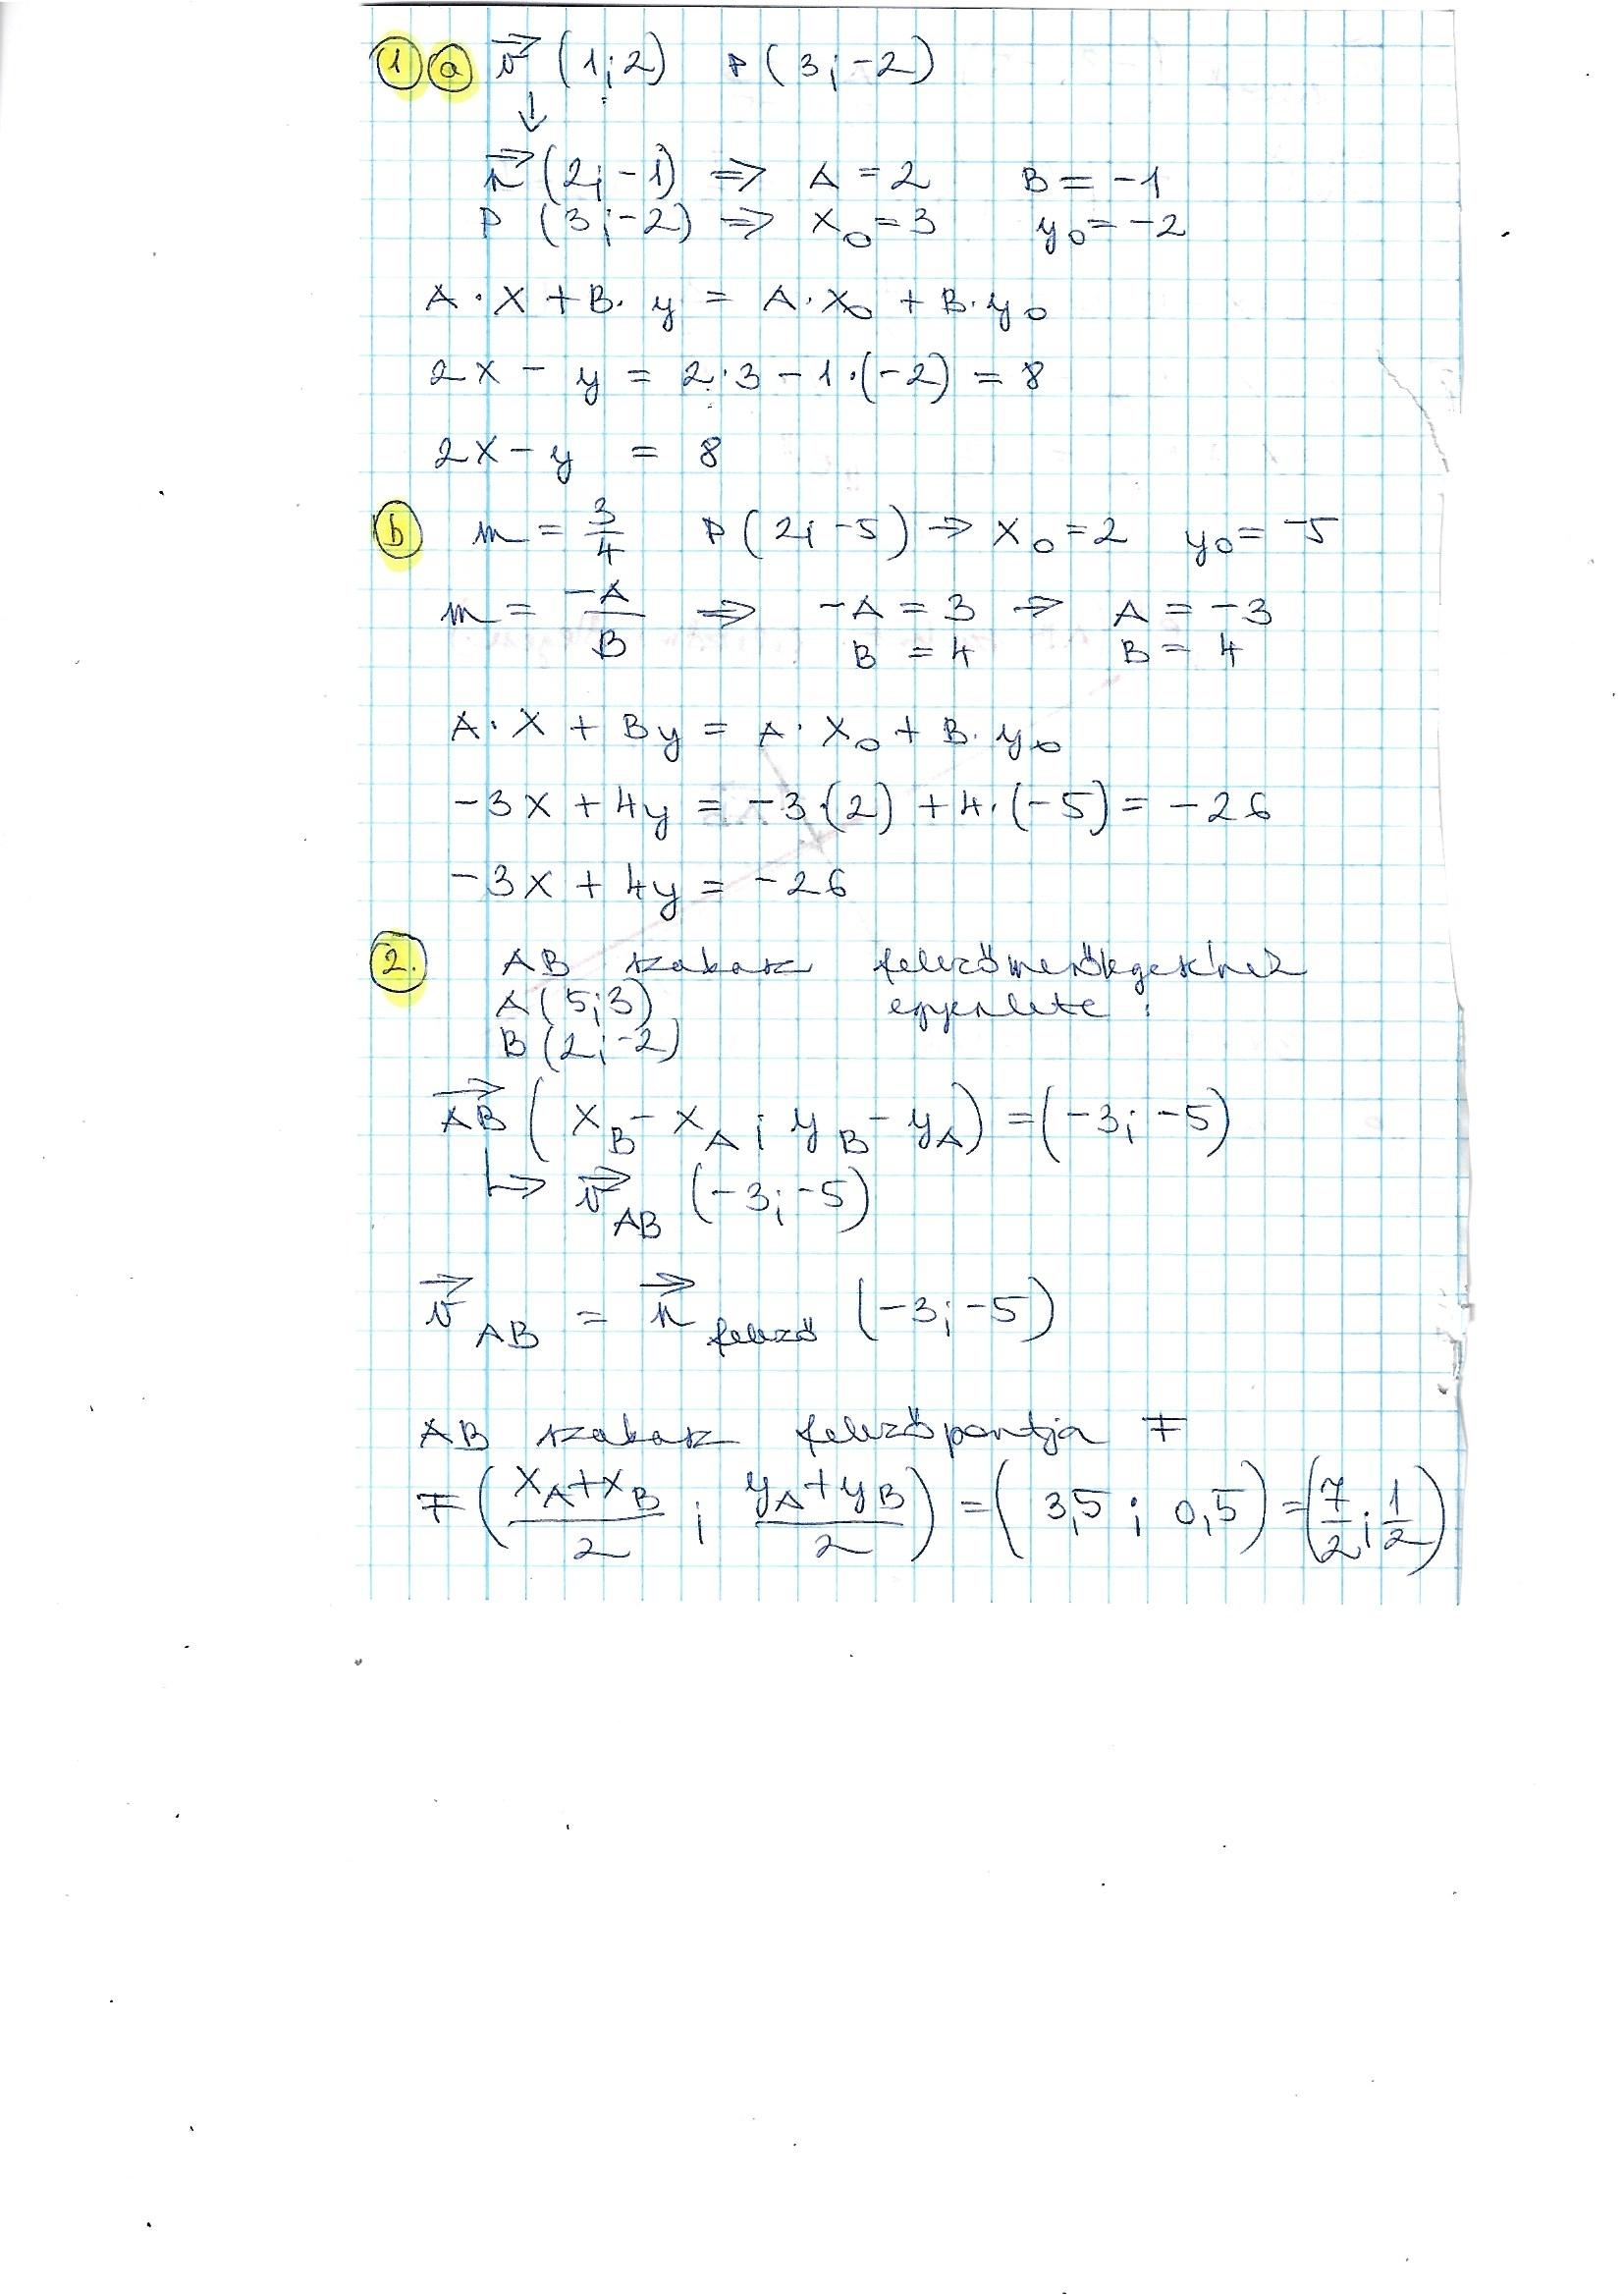 1 a v⃗ (1;2) P(3;-2)
↓
n⃗ (2;-1) ⇒ A = 2 B = -1
P (3;-2) ⇒ x₀ = 3 y₀ = -2
A·x + B·y = A·x₀ + B·y₀
2x - y = 2·3 - 1·(-2) = 8
2x - y = 8
b m = 3/4 P(2;-5) → x₀ = 2 y₀ = -5
m = -A/B ⇒ -A = 3 → A = -3
B = 4 B = 4
A·x + By = A·x₀ + B·y₀
-3x + 4y = -3·(2) + 4·(-5) = -26
-3x + 4y = -26
2. AB szakasz felezőmerőlegesének
A(5;3) egyenlete :
B(2;-2)
A⃗B⃗ (x_B - x_A ; y_B - y_A) = (-3;-5)
↳ v⃗_AB (-3;-5)
v⃗_AB = n⃗_felező (-3;-5)
AB szakasz felezőpontja F
F ((x_A+x_B)/2 ; (y_A+y_B)/2) = (3,5 ; 0,5) = (7/2 ; 1/2)